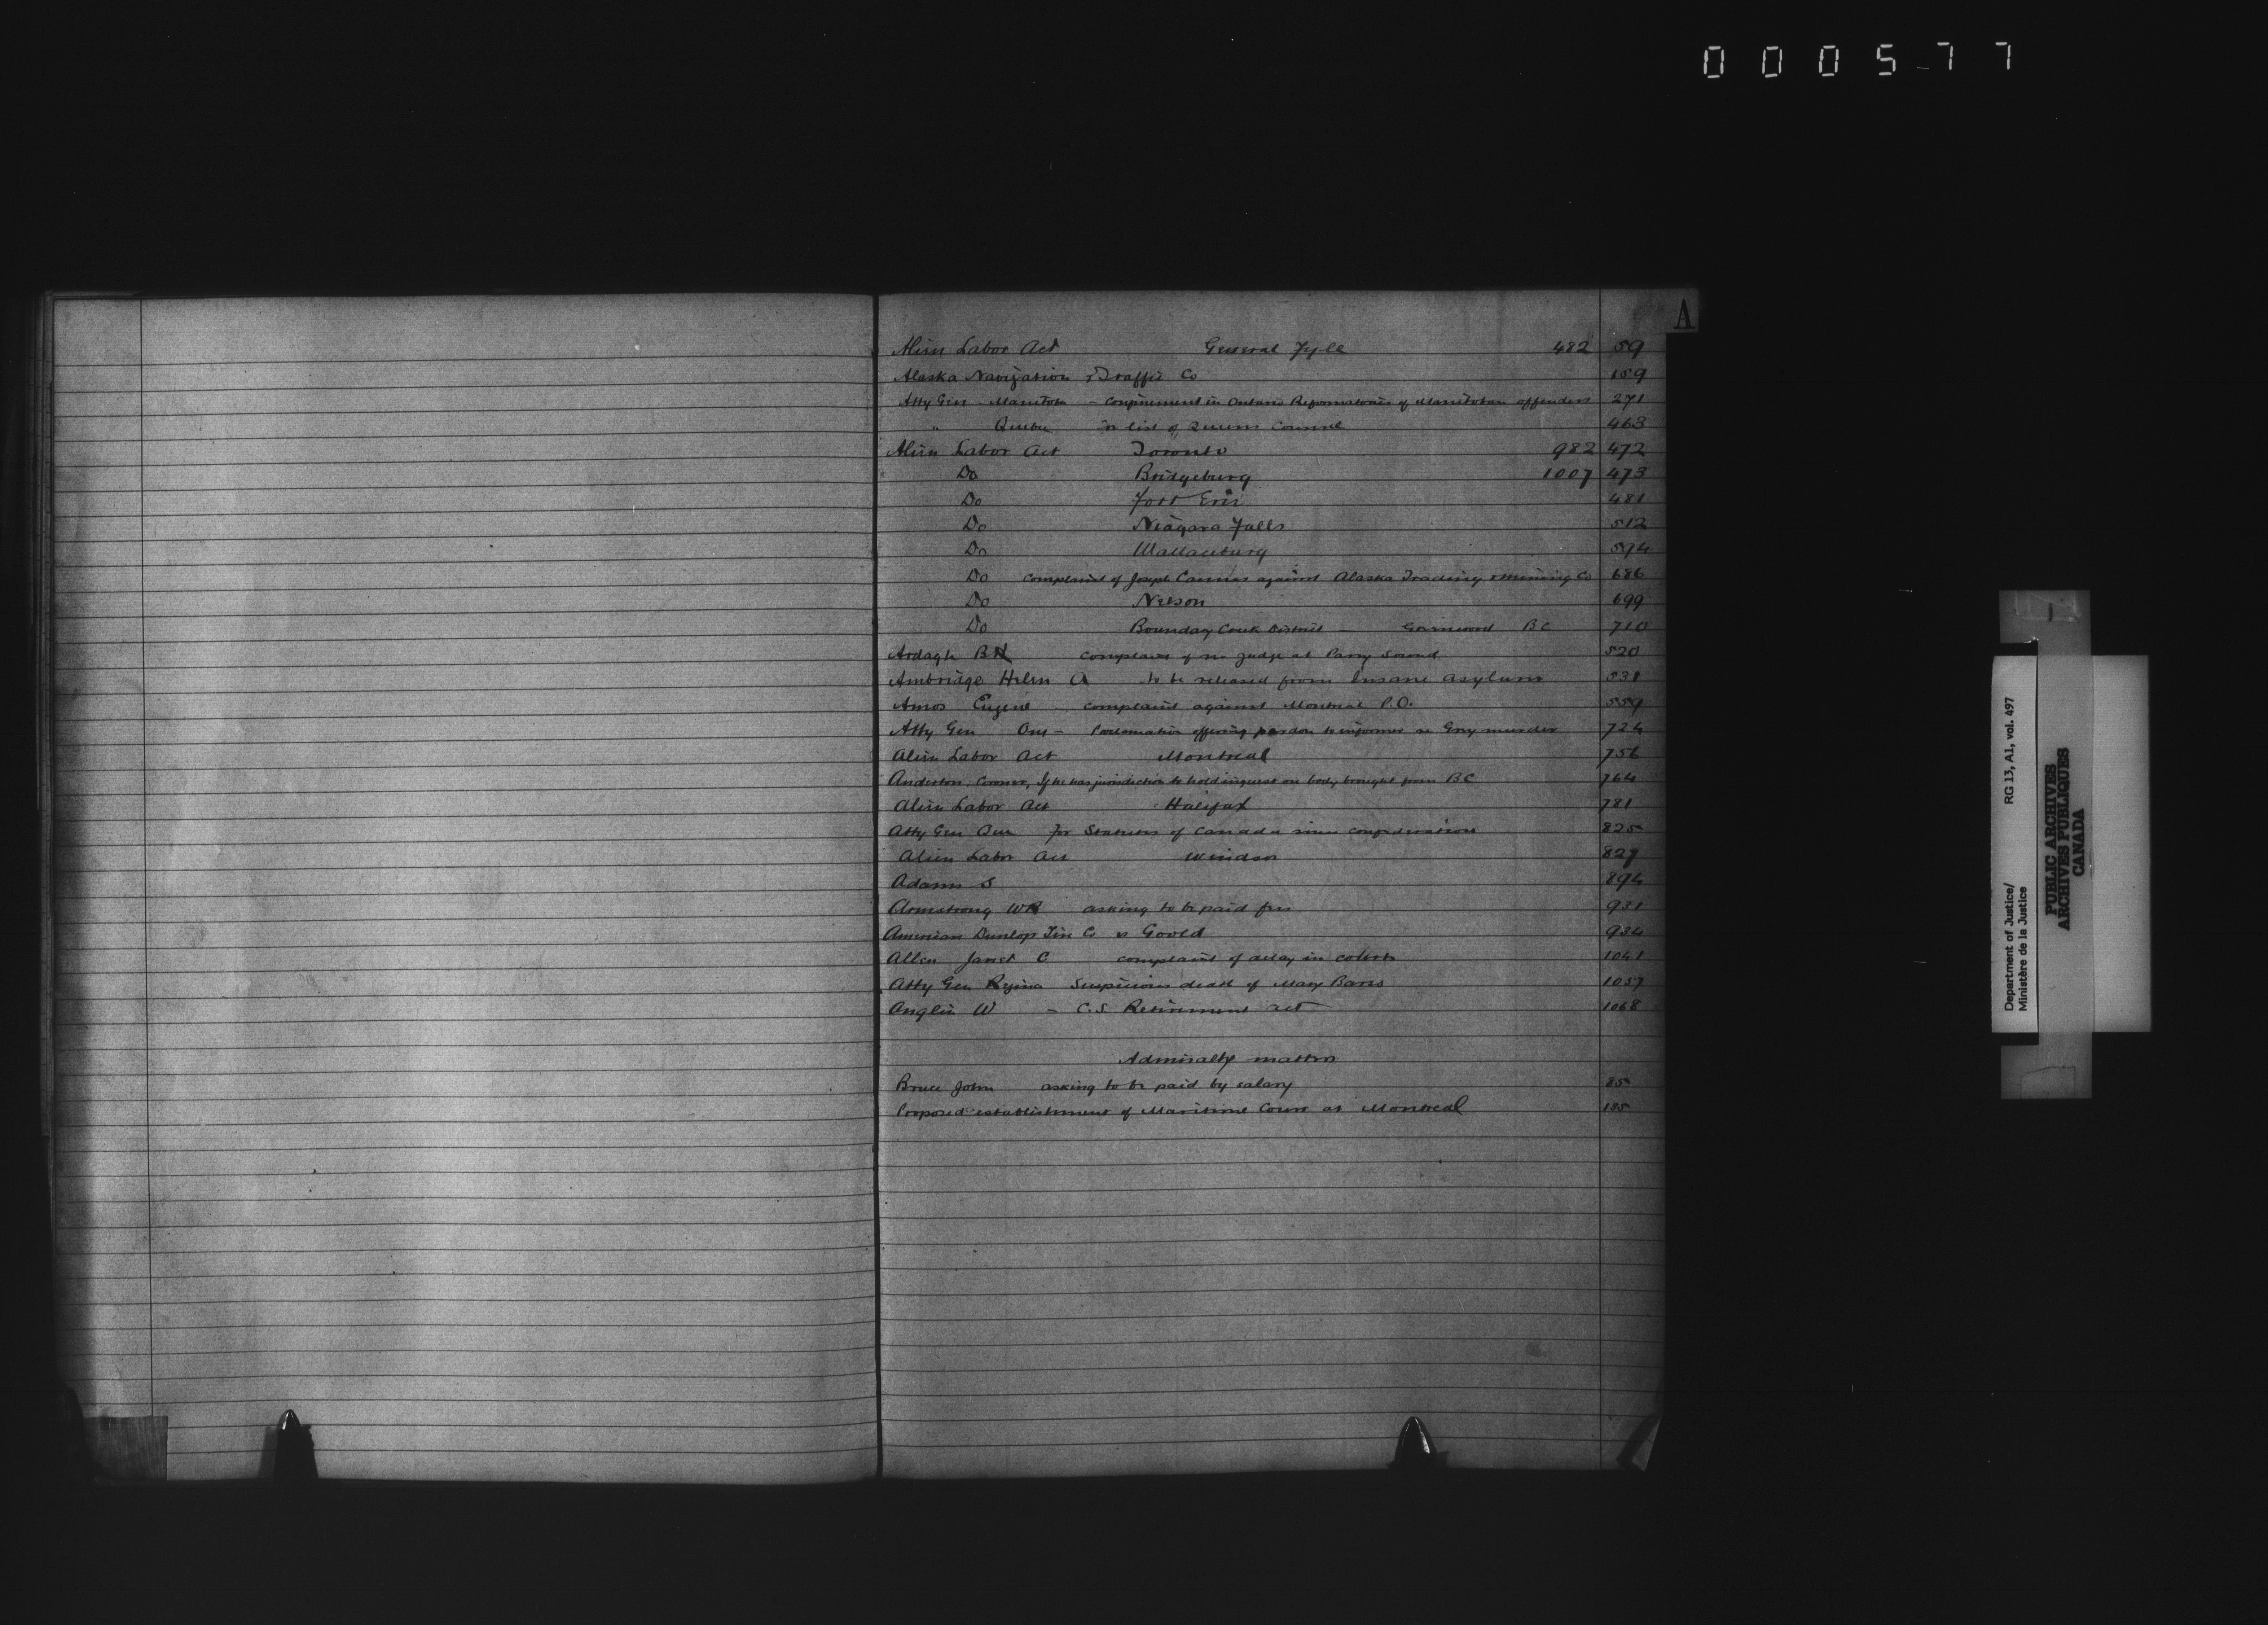 000577
A
Alien Labor Act General Fyle 482 59
Alaska Navigation & Traffic Co 159
Atty Gen Manitoba - Confinement in Ontario Reformatories of Manitoban offenders 271
" Quebec for list of Queens Counsel 463
Alien Labor Act Toronto 982 472
Do Bridgeburg 1007 473
Do Fort Erie 481
Do Niagara Falls 512
Do Wallaceburg 594
Do Complaint of Joseph against Alaska Trading & Mining Co 686
Do Nelson 699
Do Boundary Creek District - Greenwood BC 710
Ardagh BH Complaint of no Judge at Parry Sound 520
Ambridge Helen A to be released from Insane Asylum 531
Amos Eugene complaint against Montreal P.O. 559
Atty Gen Ont - Proclamation offering pardon to informer re Gory murder 724
Alien Labor Act Montreal 756
Anderton Coroner, If he has jurisdiction to hold inquest on body brought from BC 764
Alien Labor Act Halifax 781
Atty Gen Que for Statutes of Canada since confederation 825
Alien Labor Act Windsor 827
Adams S 894
Armstrong WB asking to be paid fees 931
American Dunlop Tire Co vs Goold 934
Allen Janet C complaint of delay in courts 1041
Atty Gen Regina Suspicious death of Mary 1057
Anglin W - C.S. Retirement act 1068
Admiralty matters
Bruce John asking to be paid by salary 85
Proposed establishment of Maritime Court at Montreal 135
Department of Justice/ RG 13, A1, vol. 497
Ministère de la Justice
PUBLIC ARCHIVES
ARCHIVES PUBLIQUES
CANADA